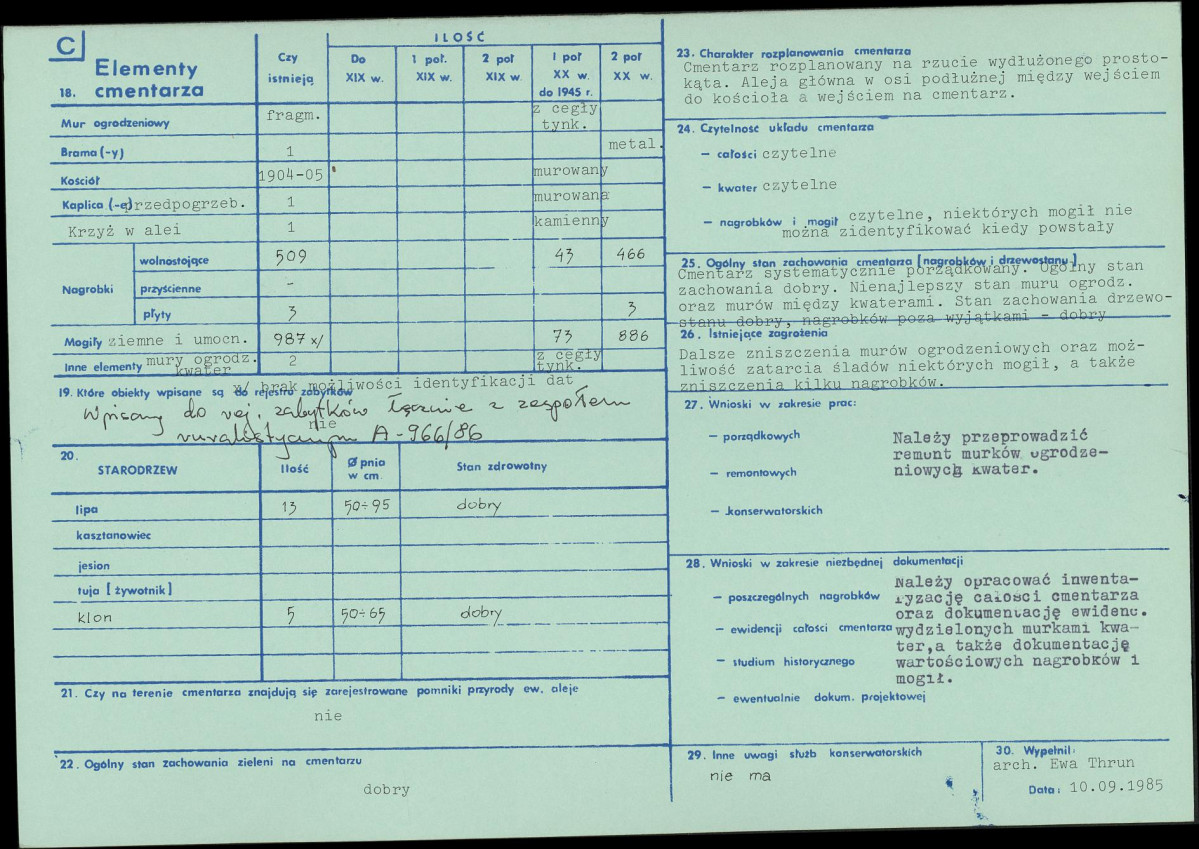 C
18. Elementy cmentarza
Czy istnieją
ILOŚĆ
Do XIX w.
1 poł. XIX w.
2 poł XIX w.
I poł XX w. do 1945 r.
2 poł XX w.
Mur ogrodzeniowy fragm. z cegły tynk.
Brama (-y) 1 metal.
Kościół 1904-05 murowany
Kaplica (-e) przedpogrzeb. 1 murowana
Krzyż w alei 1 kamienny
Nagrobki
wolnostojące 509 43 466
przyścienne -
płyty 3 3
Mogiły ziemne i umocn. 987 x/ 73 886
Inne elementy mury ogrodz. kwater 2 z cegły tynk.
x/ brak możliwości identyfikacji dat
19. Które obiekty wpisane są do rejestru zabytków
nie
Wpisany do rej. zabytków łącznie z zespołem
ruralistycznym A-966/86
20.
STARODRZEW
Ilość
Ø pnia w cm
Stan zdrowotny
lipa 13 50÷95 dobry
kasztanowiec
jesion
tuja [żywotnik]
klon 5 50÷65 dobry
21. Czy na terenie cmentarza znajdują się zarejestrowane pomniki przyrody ew. aleje
nie
22. Ogólny stan zachowania zieleni na cmentarzu
dobry
23. Charakter rozplanowania cmentarza
Cmentarz rozplanowany na rzucie wydłużonego prosto-
kąta. Aleja główna w osi podłużnej między wejściem
do kościoła a wejściem na cmentarz.
24. Czytelność układu cmentarza
— całości czytelne
— kwater czytelne
— nagrobków i mogił czytelne, niektórych mogił nie
można zidentyfikować kiedy powstały
25. Ogólny stan zachowania cmentarza [nagrobków i drzewostanu]
Cmentarz systematycznie porządkowany. Ogólny stan
zachowania dobry. Nienajlepszy stan muru ogrodz.
oraz murów między kwaterami. Stan zachowania drzewo-
stanu dobry, nagrobków poza wyjątkami - dobry
26. Istniejące zagrożenia
Dalsze zniszczenia murów ogrodzeniowych oraz moż-
liwość zatarcia śladów niektórych mogił, a także
zniszczenia kilku nagrobków.
27. Wnioski w zakresie prac:
— porządkowych
— remontowych
— konserwatorskich
Należy przeprowadzić
remont murków ogrodze-
niowych kwater.
28. Wnioski w zakresie niezbędnej dokumentacji
— poszczególnych nagrobków
— ewidencji całości cmentarza
— studium historycznego
— ewentualnie dokum. projektowej
Należy opracować inwenta-
ryzację całości cmentarza
oraz dokumentację ewidenc.
wydzielonych murkami kwa-
ter,a także dokumentację
wartościowych nagrobków i
mogił.
29. Inne uwagi służb konserwatorskich
nie ma
30. Wypełnił:
arch. Ewa Thrun
Data: 10.09.1985